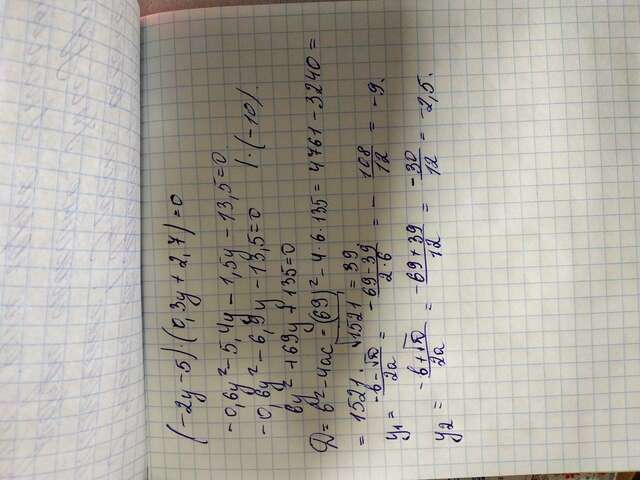 (-2y-5)·(0,3y+2,7)=0
-0,6y²-5,4y-1,5y-13,5=0
-0,6y²-6,9y-13,5=0 |·(-10)
6y²+69y+135=0
D=b²-4ac=(69)²-4·6·135=4761-3240=
=1521. √1521=39
y₁=(-b-√D)/2a=(-69-39)/(2·6)=-108/12=-9.
y₂=(-b+√D)/2a=(-69+39)/12=-30/12=-2,5.